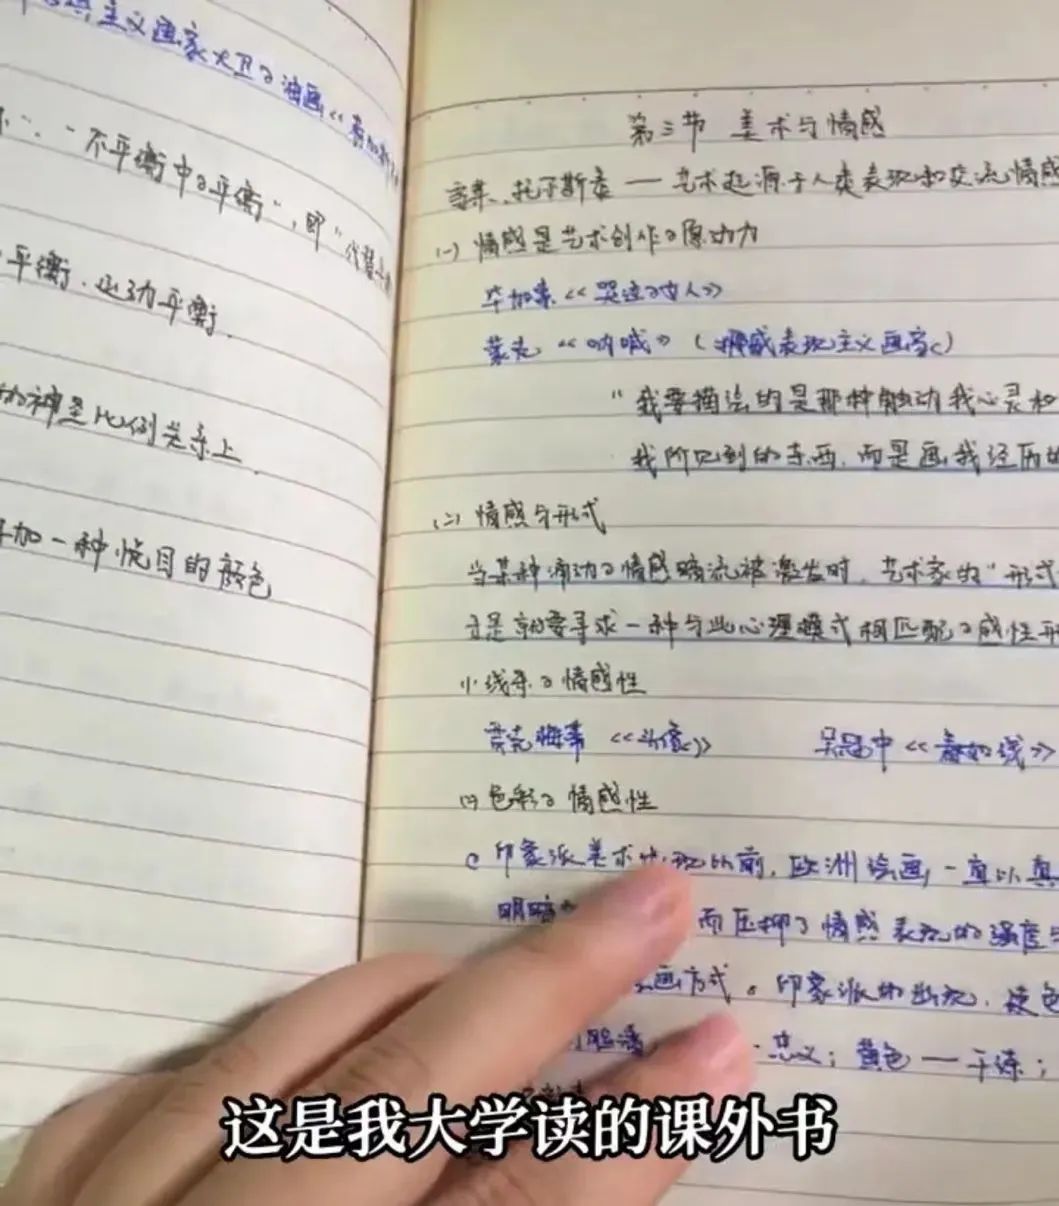 主义画家大卫的油画《
"不平衡中的平衡",即"代替
平衡、运动平衡.
的神圣比例关系上.
加一种悦目的颜色
第三节 美术与情感
雪莱、托尔斯泰——艺术起源于人类表现和交流情感
(一) 情感是艺术创作的原动力
毕加索《哭泣的女人》
蒙克《呐喊》(挪威表现主义画家)
"我要描绘的是那种触动我心灵和
我所见到的东西,而是画我经历的
(二) 情感与形式
当某种涌动的情感暗流被激发时,艺术家的"形式
就要寻求一种与此心理模式相匹配的感性形
线条的情感性
《头像》 吴冠中《春如线》
色彩的情感性
印象派美术出现以前,欧洲绘画一直以真
明暗 而压抑了情感表现的强度
画方式。印象派的出现,使色
脸谱 忠义;黄色——干练;
这是我大学读的课外书